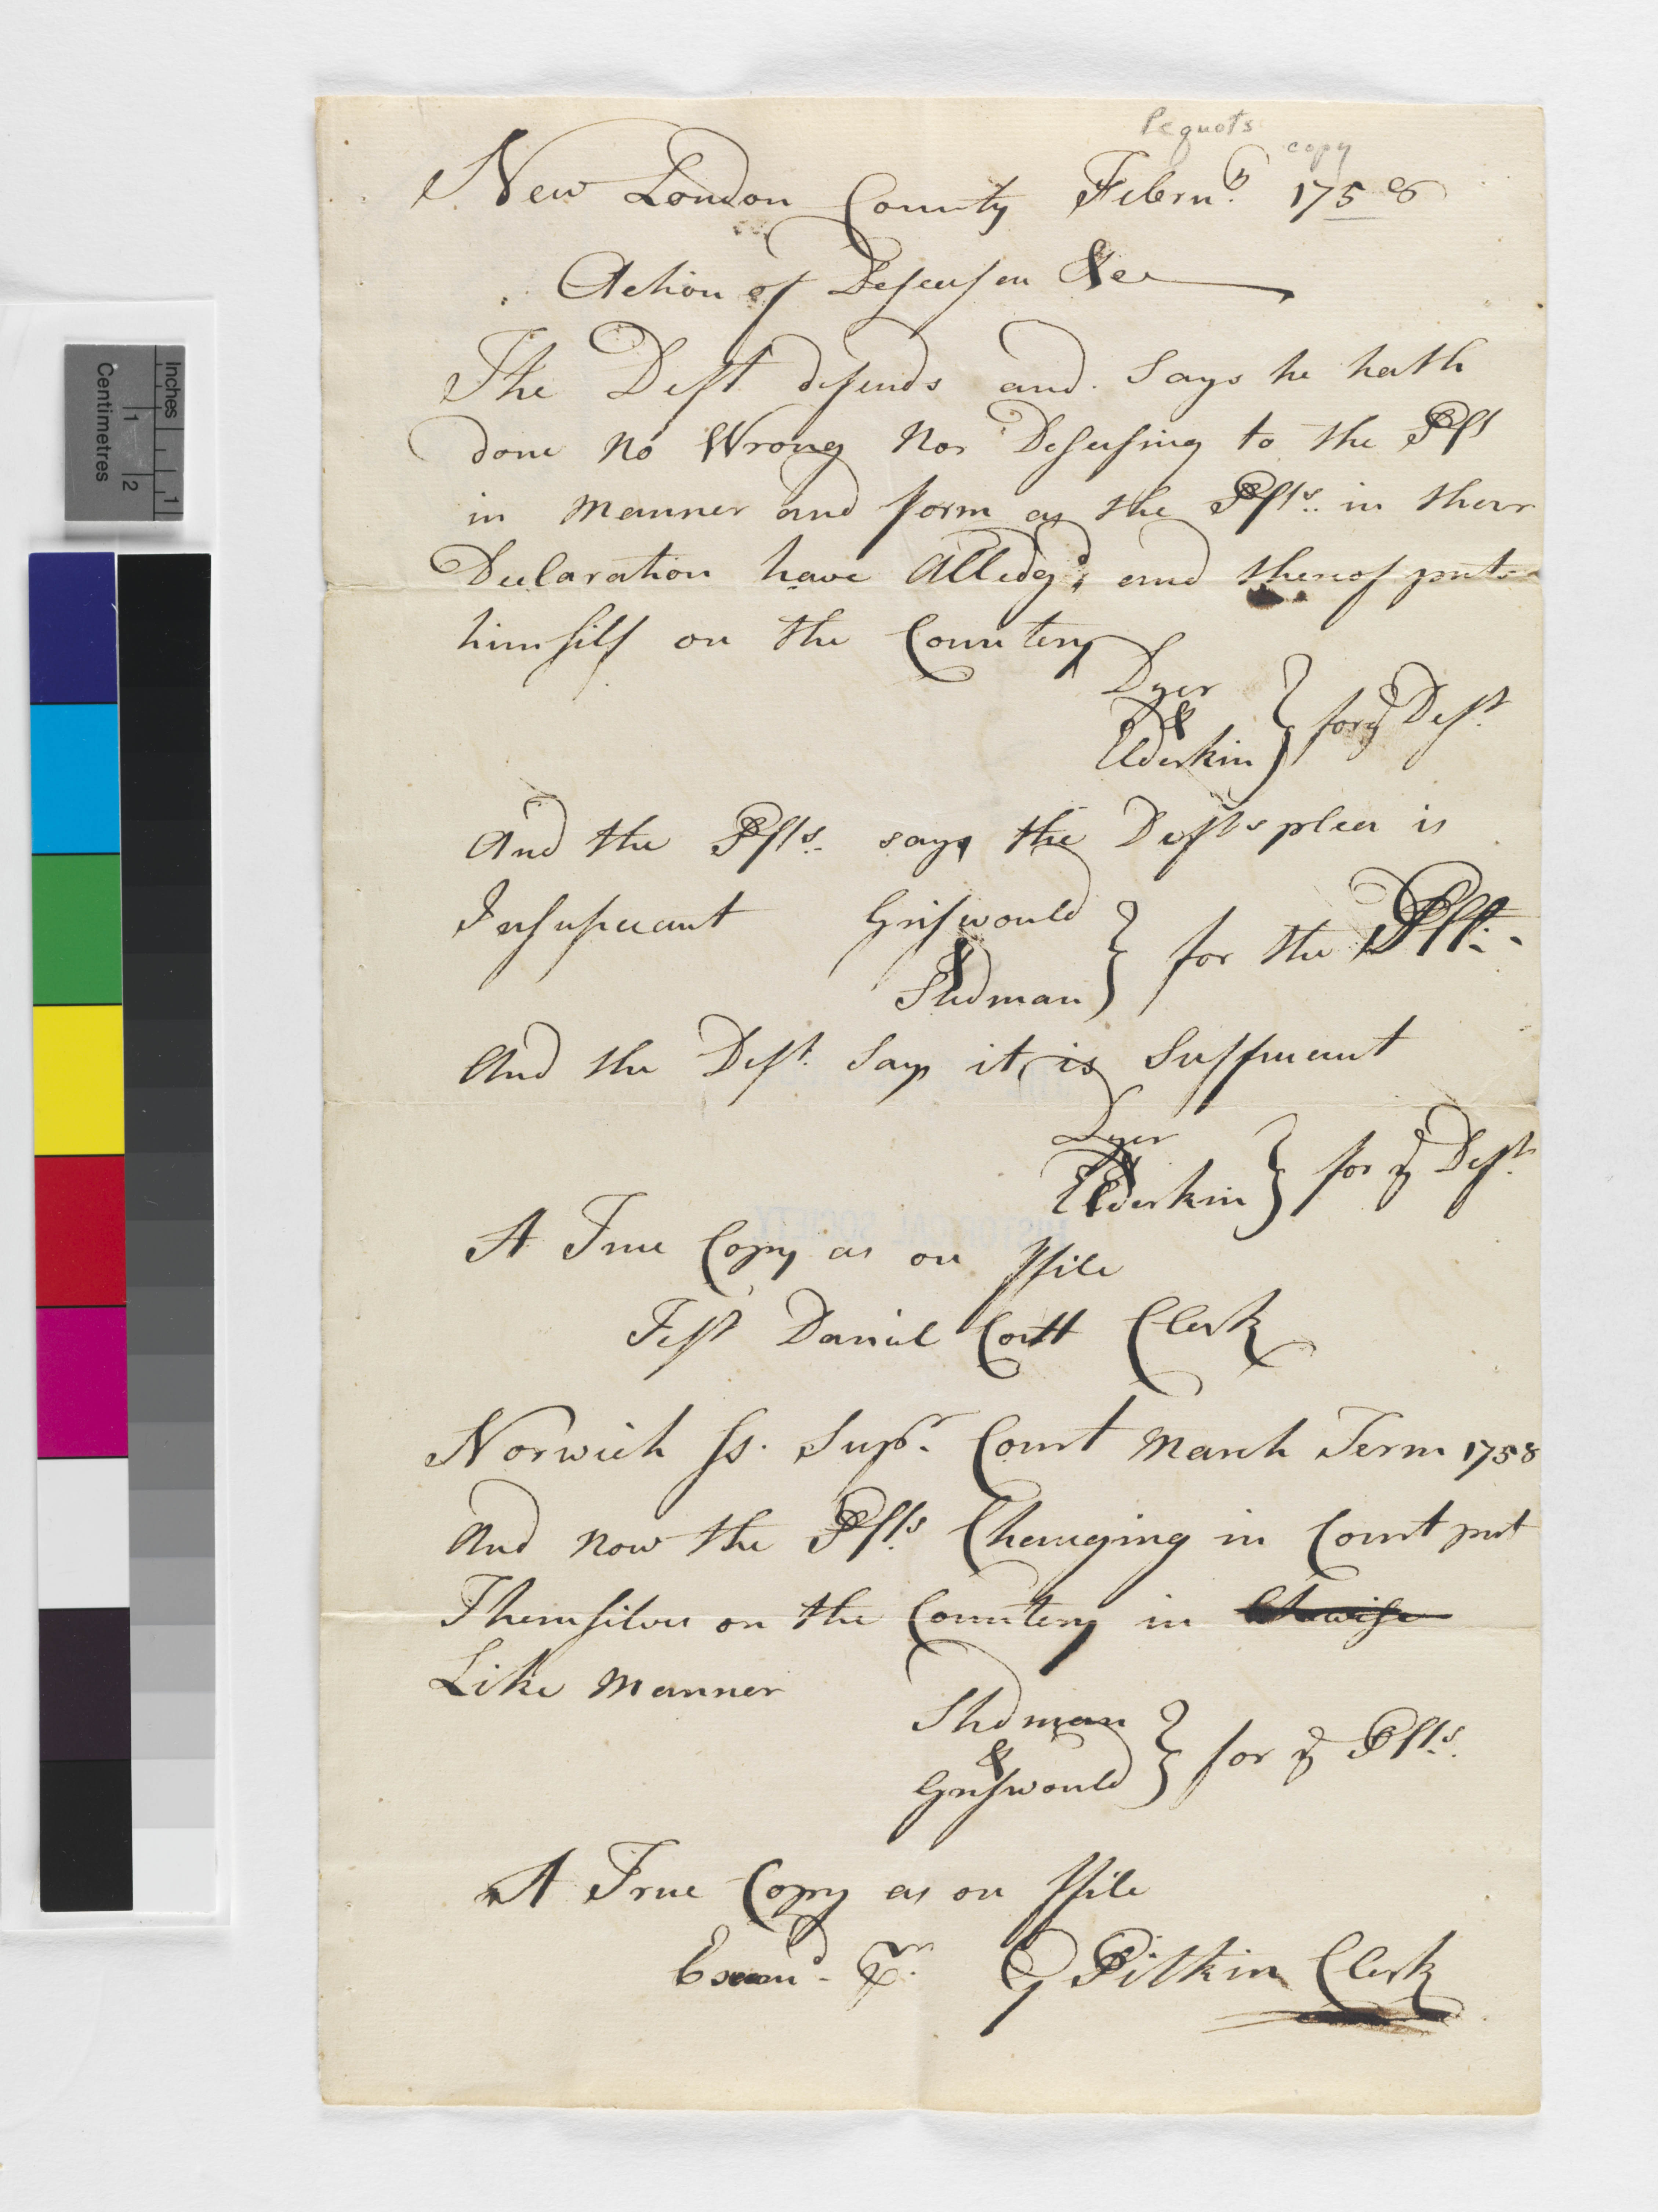 Pequots
copy
New London County Febru.y 1758
Action of Desceusen &c
The Deft defends and Says he hath
done no Wrong Nor Deseusing to the Plfs
in manner and form as the Plfts. in their
Declaration have Alledg'd, and thereof puts
himself on the Country
Dyer
&
Elderkin } for ye Deft
And the Plfts. says the Defts plea is
Insufficiant
Griswould
&
Stedman } for the Plft.
And the Deft. Say it is Sufficiant
Dyer
&
Elderkin } for ye Deft
A True Copy as on ffile
Test Daniel Coitt Clerk
Norwich ss. Supr. Court March Term 1758
And now the Plfts Changing in Court put
Themselves on the Country in Likewise
Like manner
Stedman
&
Griswould } for ye Plfts.
A True Copy as on ffile
Examd. pr. G Pitkin Clerk
Inches
Centimetres
1
2
1
HISTORICAL SOCIETY